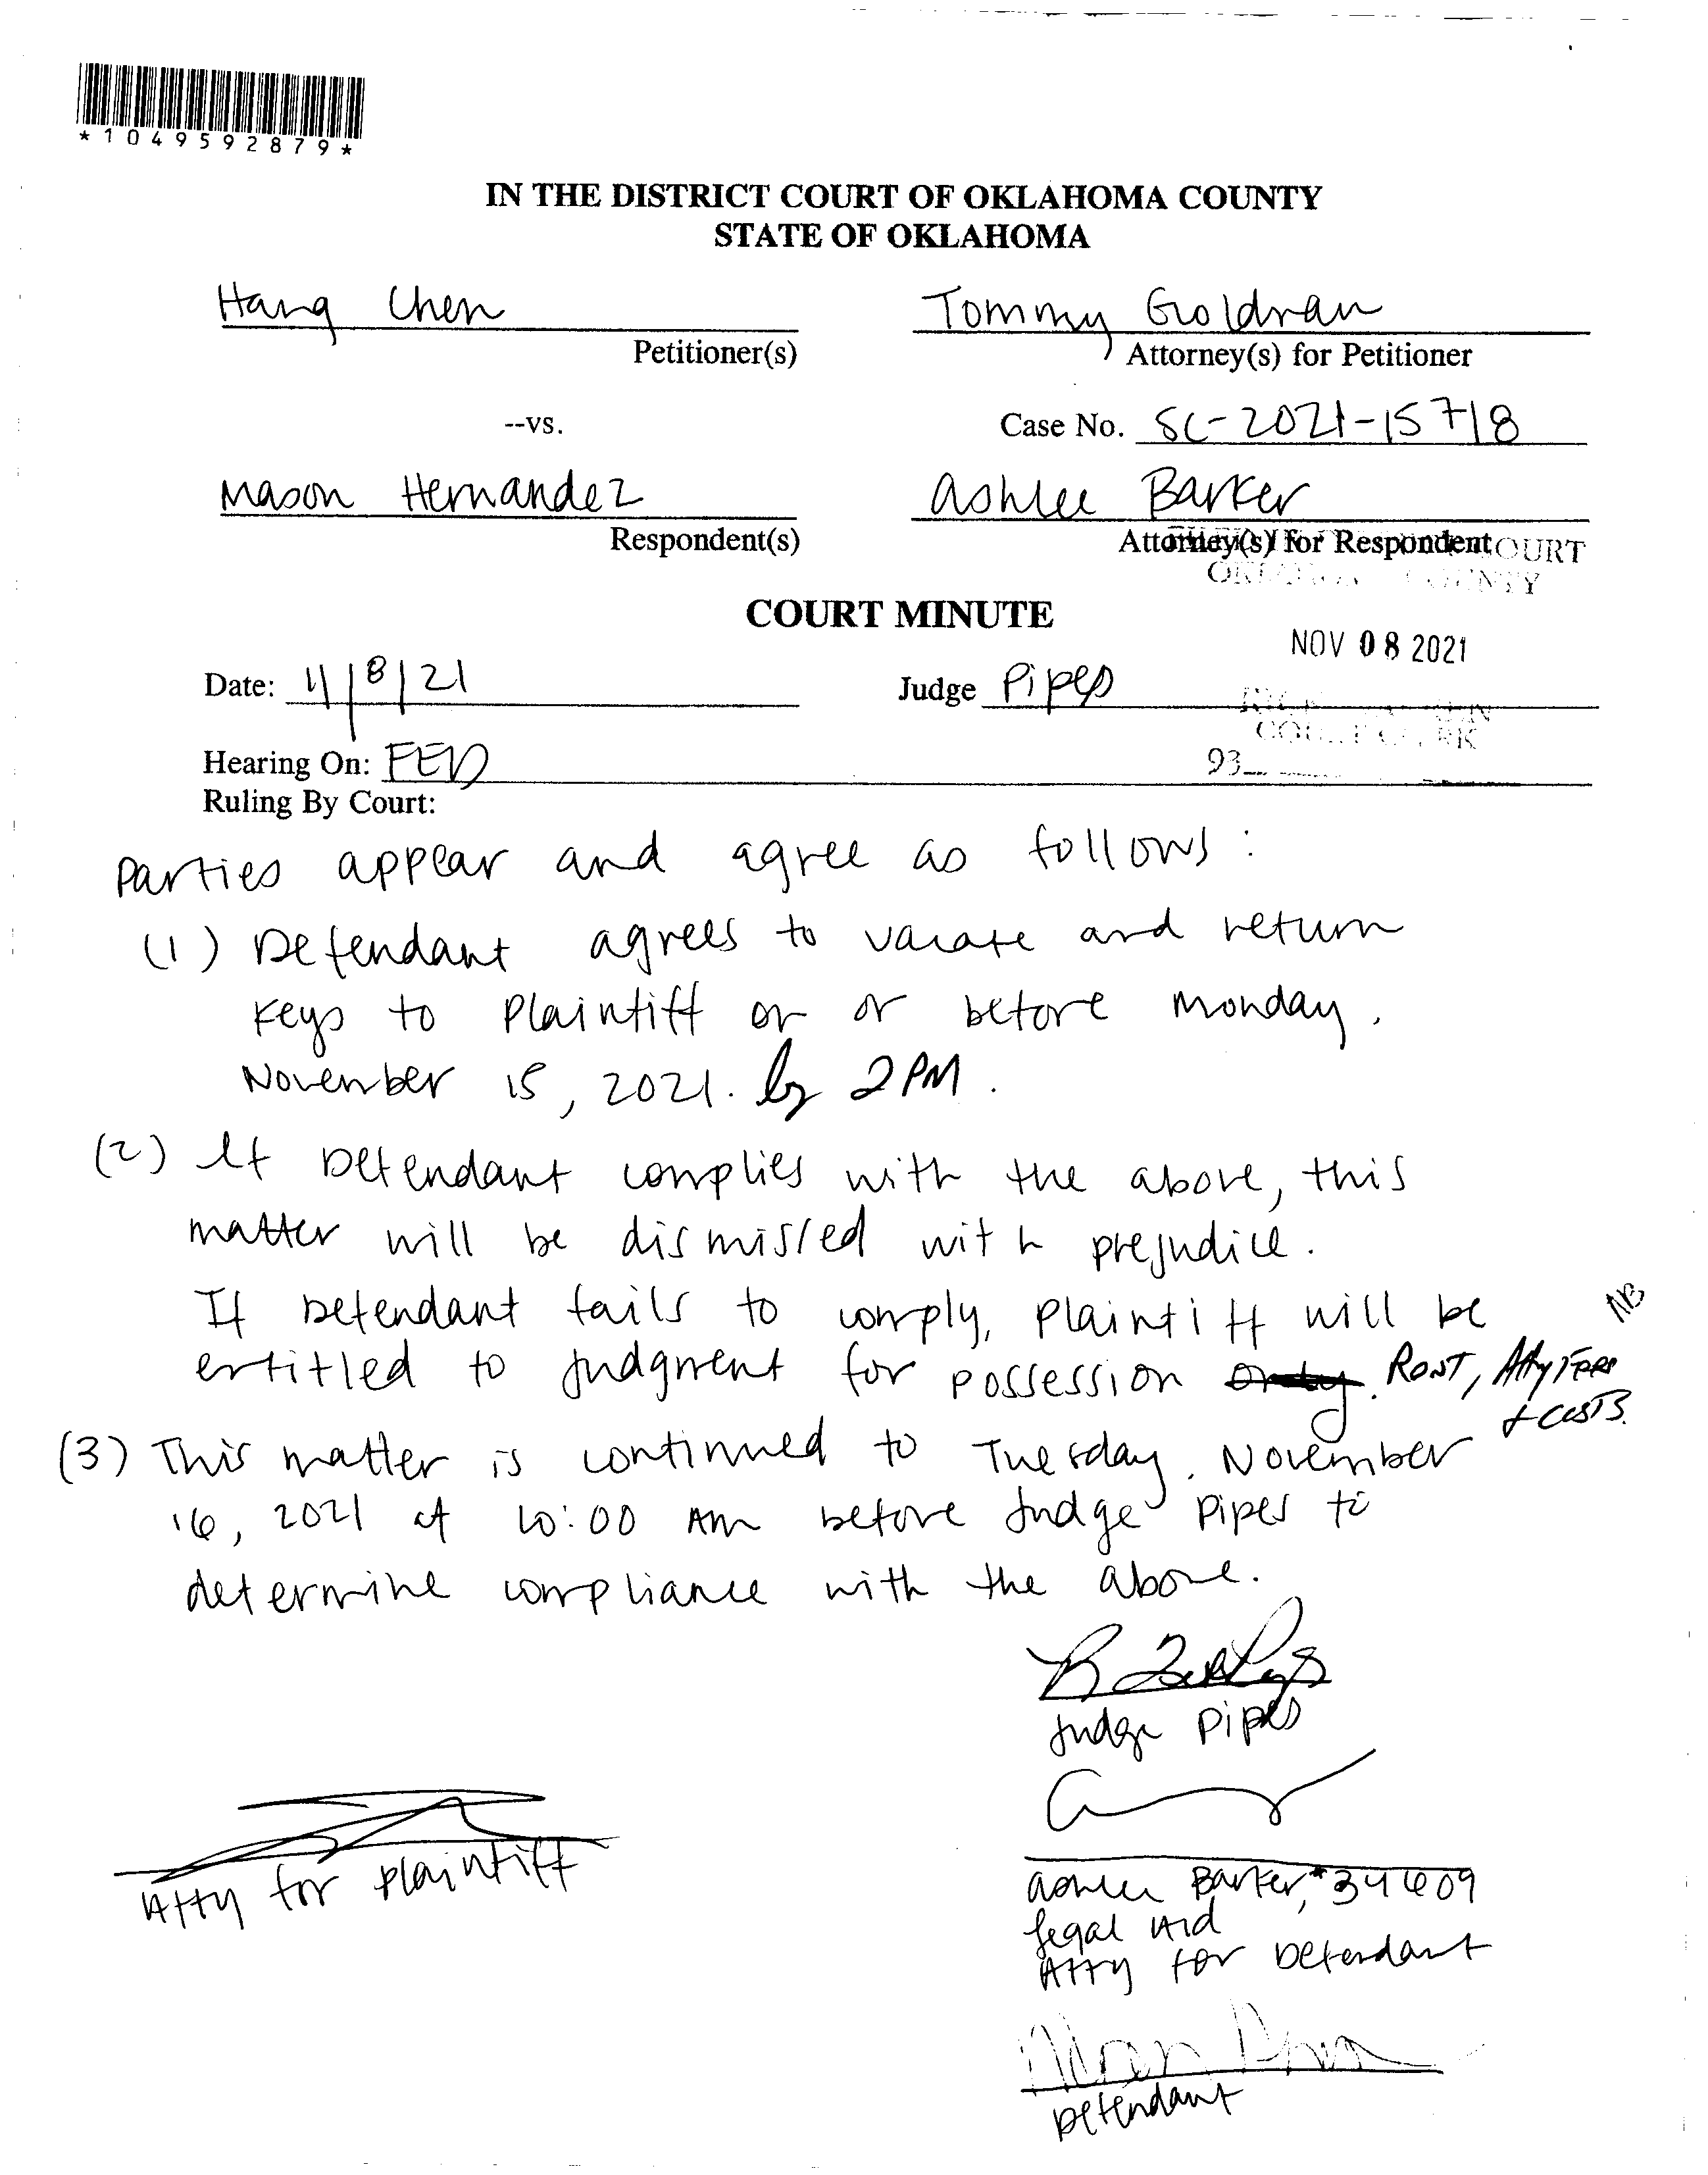 *1049592879*
IN THE DISTRICT COURT OF OKLAHOMA COUNTY
STATE OF OKLAHOMA
Hang Chen
Petitioner(s)
Tommy Goldman
Attorney(s) for Petitioner
--vs.
Case No. SC-2021-15718
Mason Hernandez
Respondent(s)
Ashlee Barker
Attorney(s) for Respondent
COURT
COUNTY
COURT MINUTE
NOV 08 2021
Date: 11/8/21
Judge Pipes
COURT CLERK
Hearing On: FED
93
Ruling By Court:
Parties appear and agree as follows:
(1) Defendant agrees to vacate and return
keys to Plaintiff on or before Monday,
November 15, 2021. by 2PM.
(2) If Defendant complies with the above, this
matter will be dismissed with prejudice.
If Defendant fails to comply, Plaintiff will be
AB
entitled to judgment for possession only. RENT, Atty FEES
+ COSTS.
(3) This matter is continued to Tuesday, November
16, 2021 at 10:00 AM before Judge Pipes to
determine compliance with the above.
Judge Pipes
Atty for Plaintiff
Ashlee Barker, #34609
Legal Aid
Atty for Defendant
Defendant